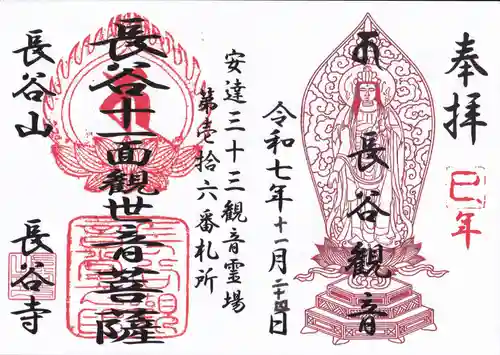 奉拝
巳年
長谷観音
令和七年十一月二十四日
安達三十三観音霊場
第壱拾六番札所
長谷十一面観世音菩薩
長谷山
長谷寺